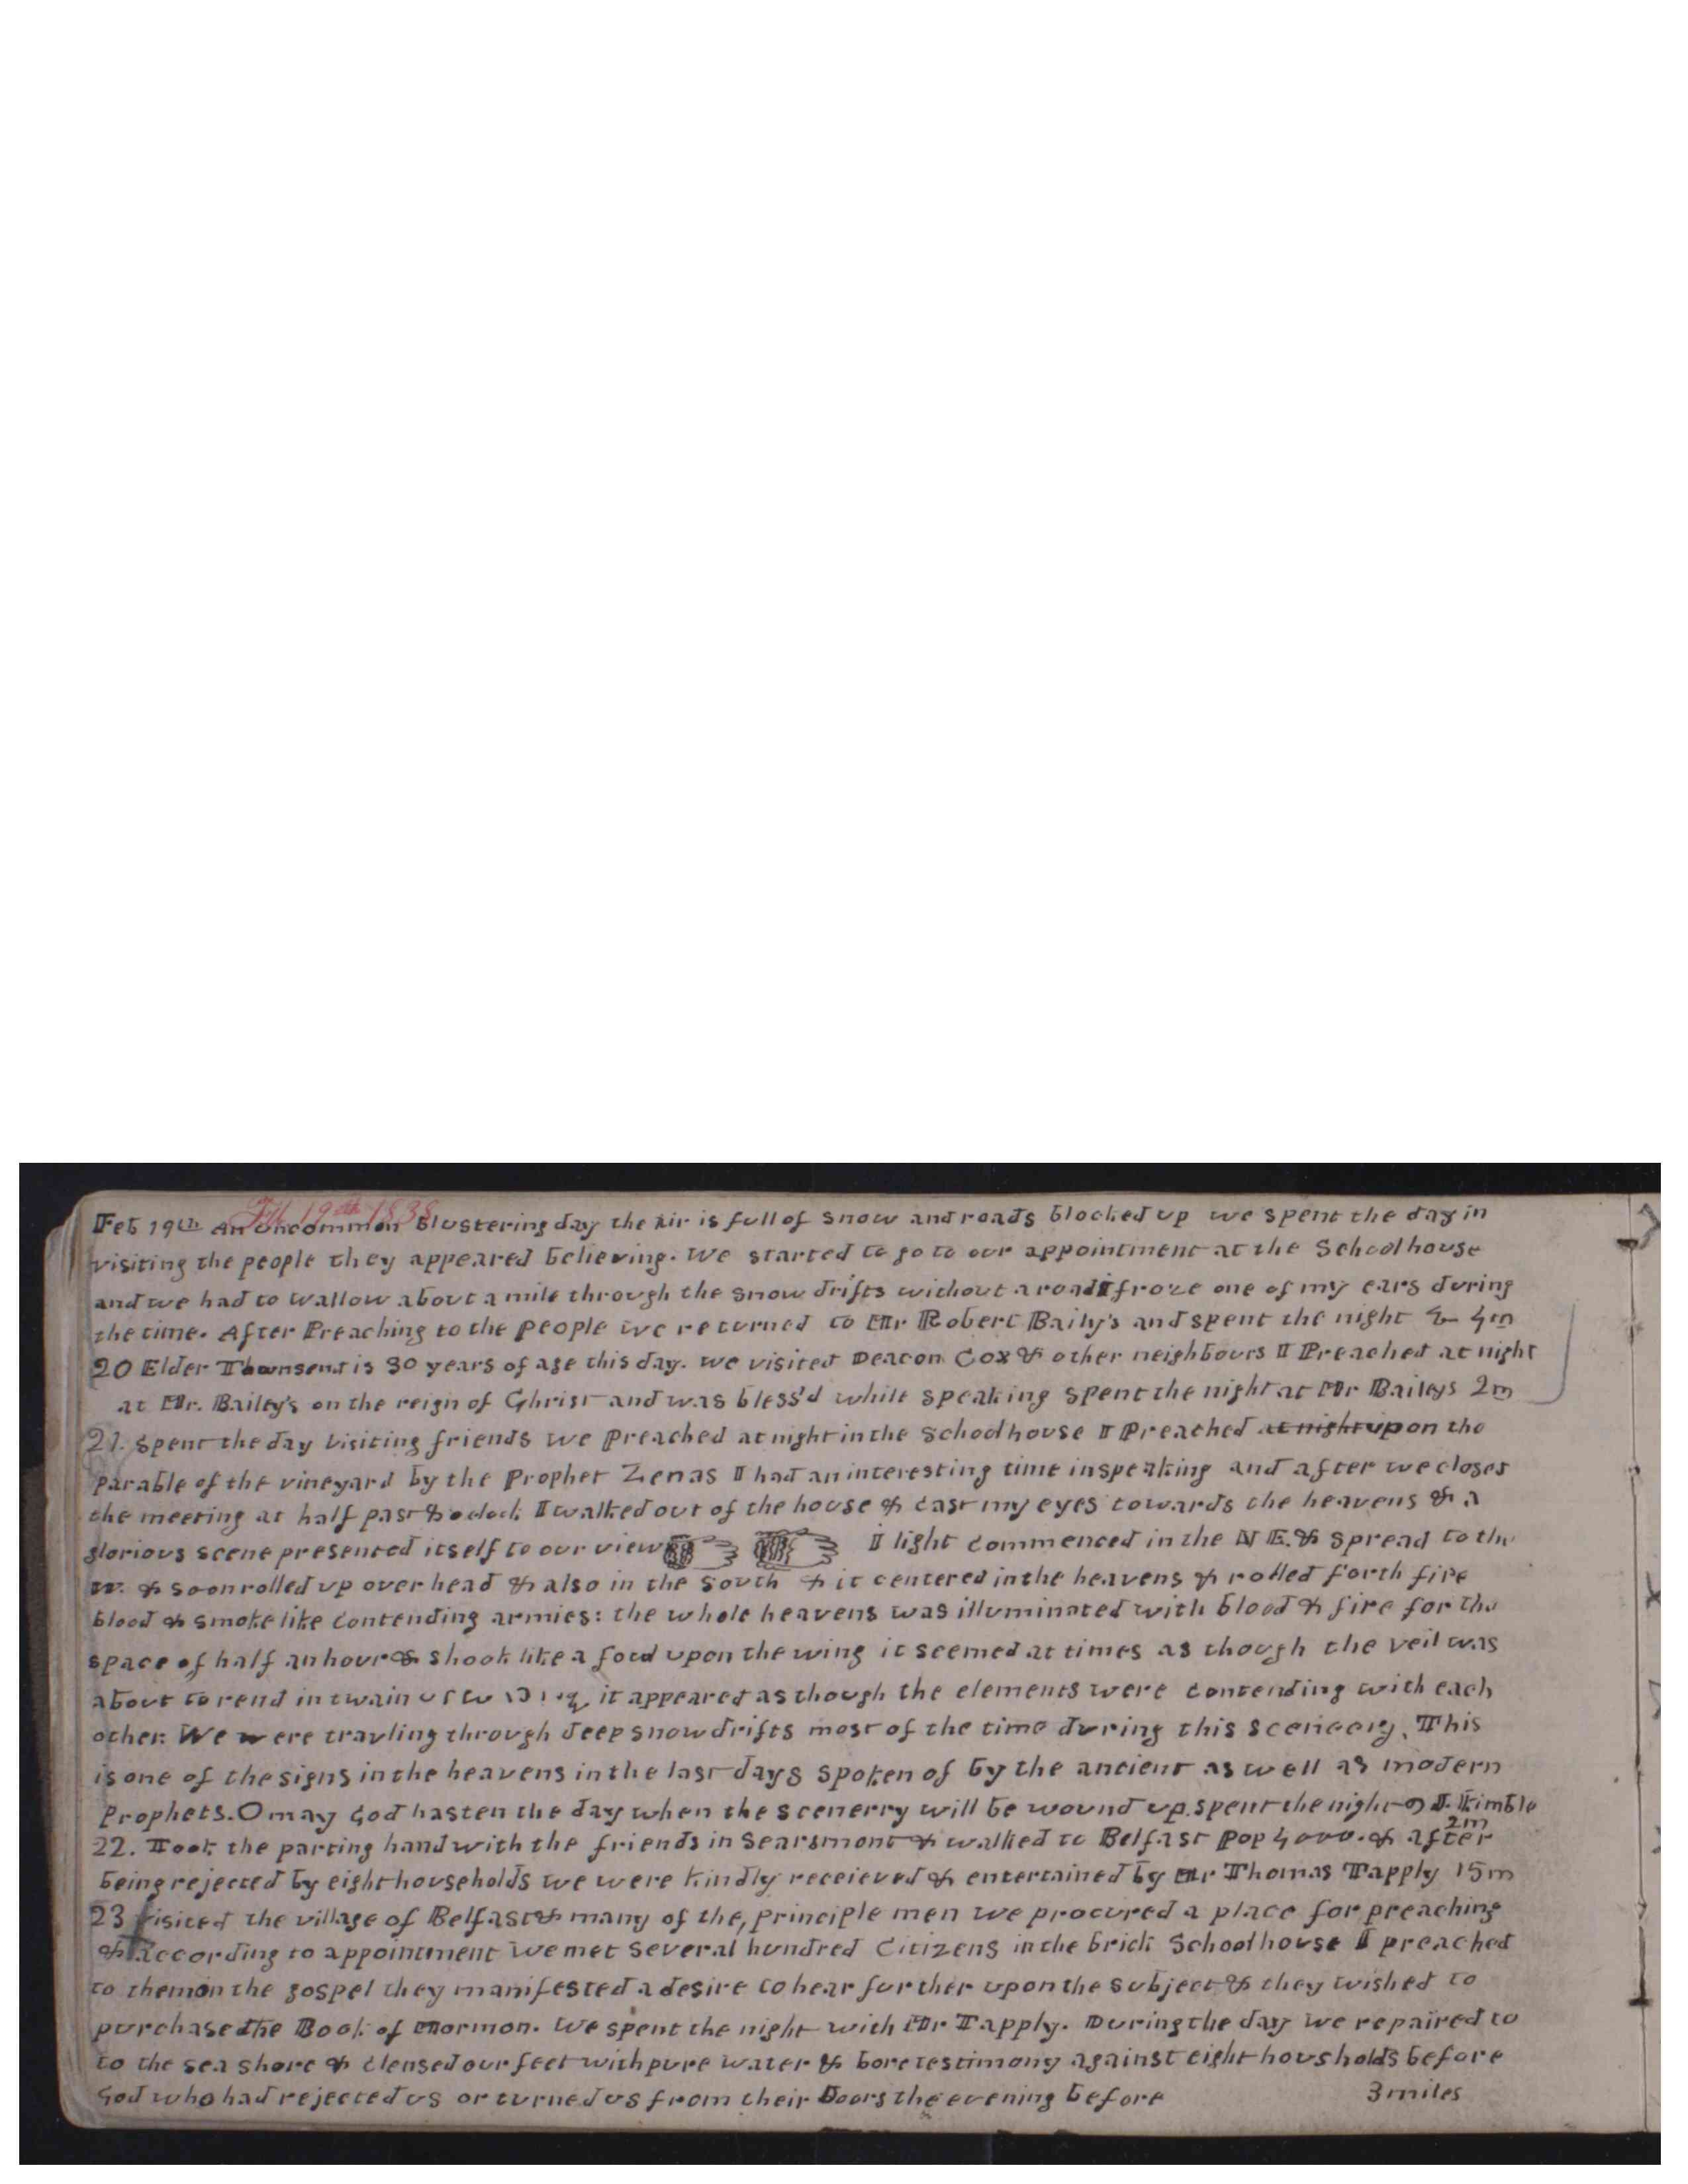 Feb 19th 1838
Feb 19th An uncommon Blustering day the air is full of snow and roads blocked up we spent the day in
visiting the people they appeared believing. We started to go to our appointment at the Schoolhouse
and we had to wallow about a mile through the snow drifts without a road I froze one of my ears during
the time. After Preaching to the People we returned to Mr Robert Baily's and spent the night 4m
20 Elder Townsend is 30 years of age this day. we visited Deacon Cox & other neighbours I Preached at night
at Mr. Bailey's on the reign of Christ and was bless'd while speaking spent the night at Mr Baileys 2m
21. spent the day visiting friends we Preached at night in the Schoolhouse I Preached at night upon the
Parable of the vineyard by the Prophet Zenas I had an interesting time in speaking and after we closed
the meeting at half past 8 oclock I walked out of the house & cast my eyes towards the heavens & a
glorious scene presented itself to our view I light commenced in the N E. & spread to the
W. & soon rolled up over head & also in the South & it centered in the heavens & rolled forth fire
blood & smoke like contending armies: the whole heavens was illuminated with blood & fire for the
space of half an hour & shook like a fowl upon the wing it seemed at times as though the veil was
about to rend in twain it appeared as though the elements were contending with each
other. We were travling through deep snow drifts most of the time during this scenery. This
is one of the signs in the heavens in the last days spoken of by the ancient as well as modern
Prophets. O may God hasten the day when the scenerry will be wound up. spent the night J. Kimble
2m
22. Took the parting hand with the friends in Searsmont & walked to Belfast Pop 4000. & after
being rejected by eight households we were kindly receieved & entertained by Mr Thomas Tapply 15m
23 visited the village of Belfast & many of the, principle men we procured a place for preaching
& according to appointment we met several hundred Citizens in the brick Schoolhouse I preached
to them on the gospel they manifested a desire to hear further upon the subject & they wished to
purchase the Book of Mormon. We spent the night with Mr Tapply. During the day we repaired to
to the sea shore & clensed our feet with pure water & bore testimony against eight housholds before
God who had rejected us or turned us from their Doors the evening before 3 miles